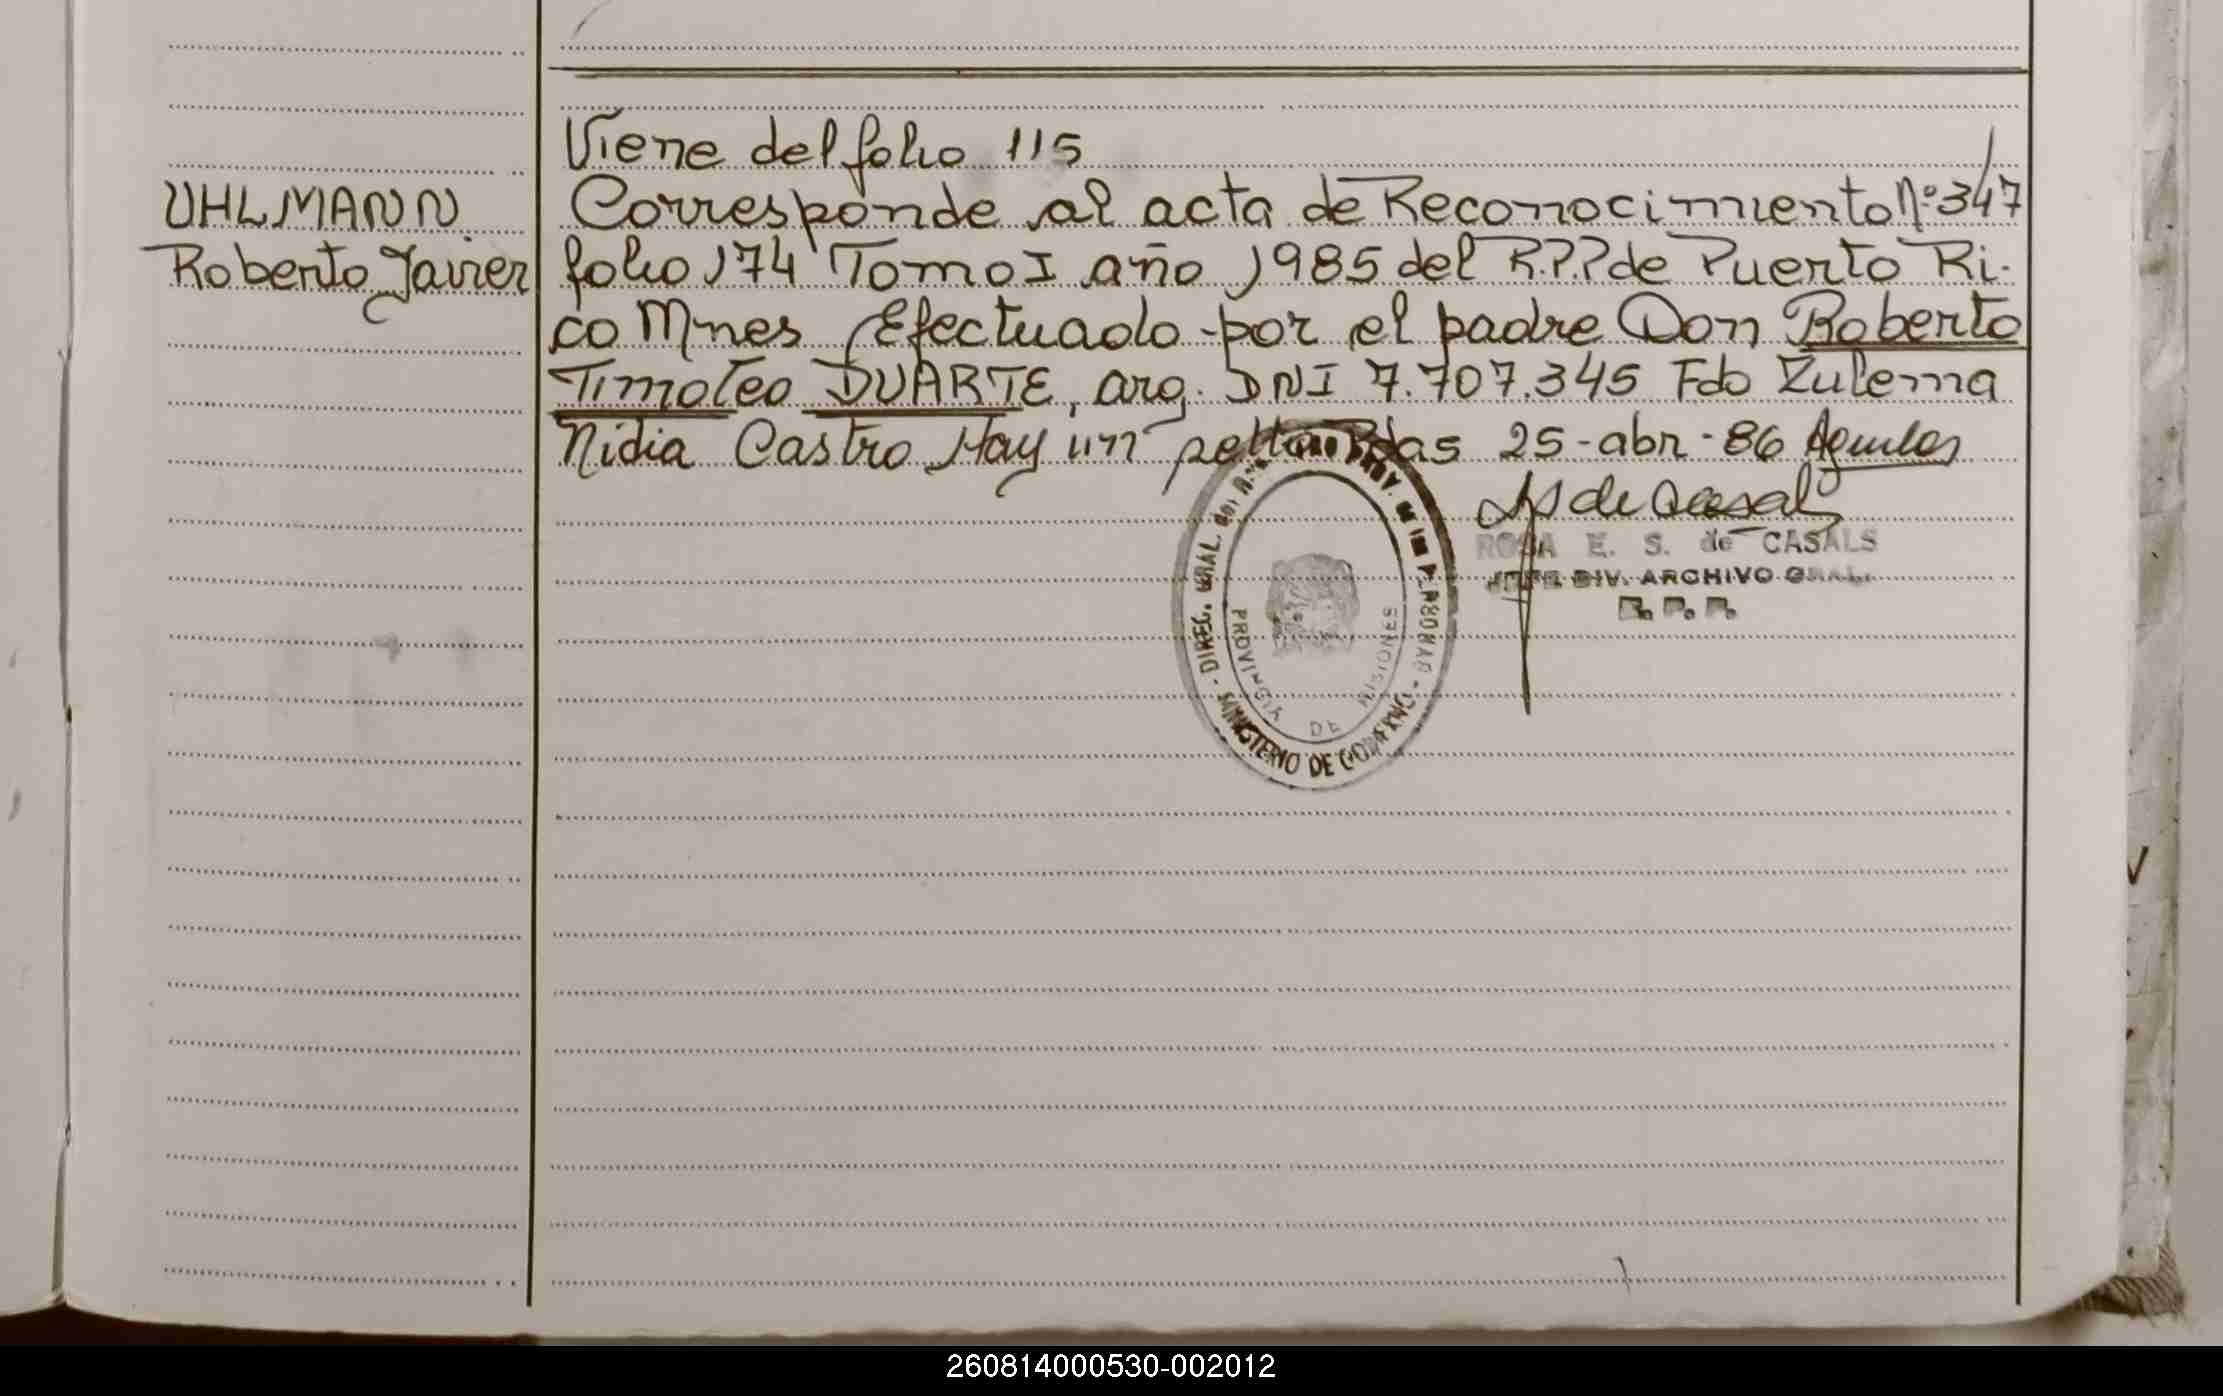 Viene del folio 115
UHLMANN Corresponde al acta de Reconocimiento Nº 347
Roberto Javier folio 174 Tomo I año 1985 del R.P.P de Puerto Ri-
co Mnes Efectuado por el padre Don Roberto
Timoteo DUARTE, arg. DNI 7.707.345 Fdo Zulema
Nidia Castro Hay un sello Pdas 25-abr-86
de Casals
ROSA E. S. de CASALS
JEFE DIV. ARCHIVO GRAL.
R. P. P.
DIREC. GRAL. DE LAS PERSONAS
PROVINCIA DE MISIONES
MINISTERIO DE GOBIERNO
260814000530-002012